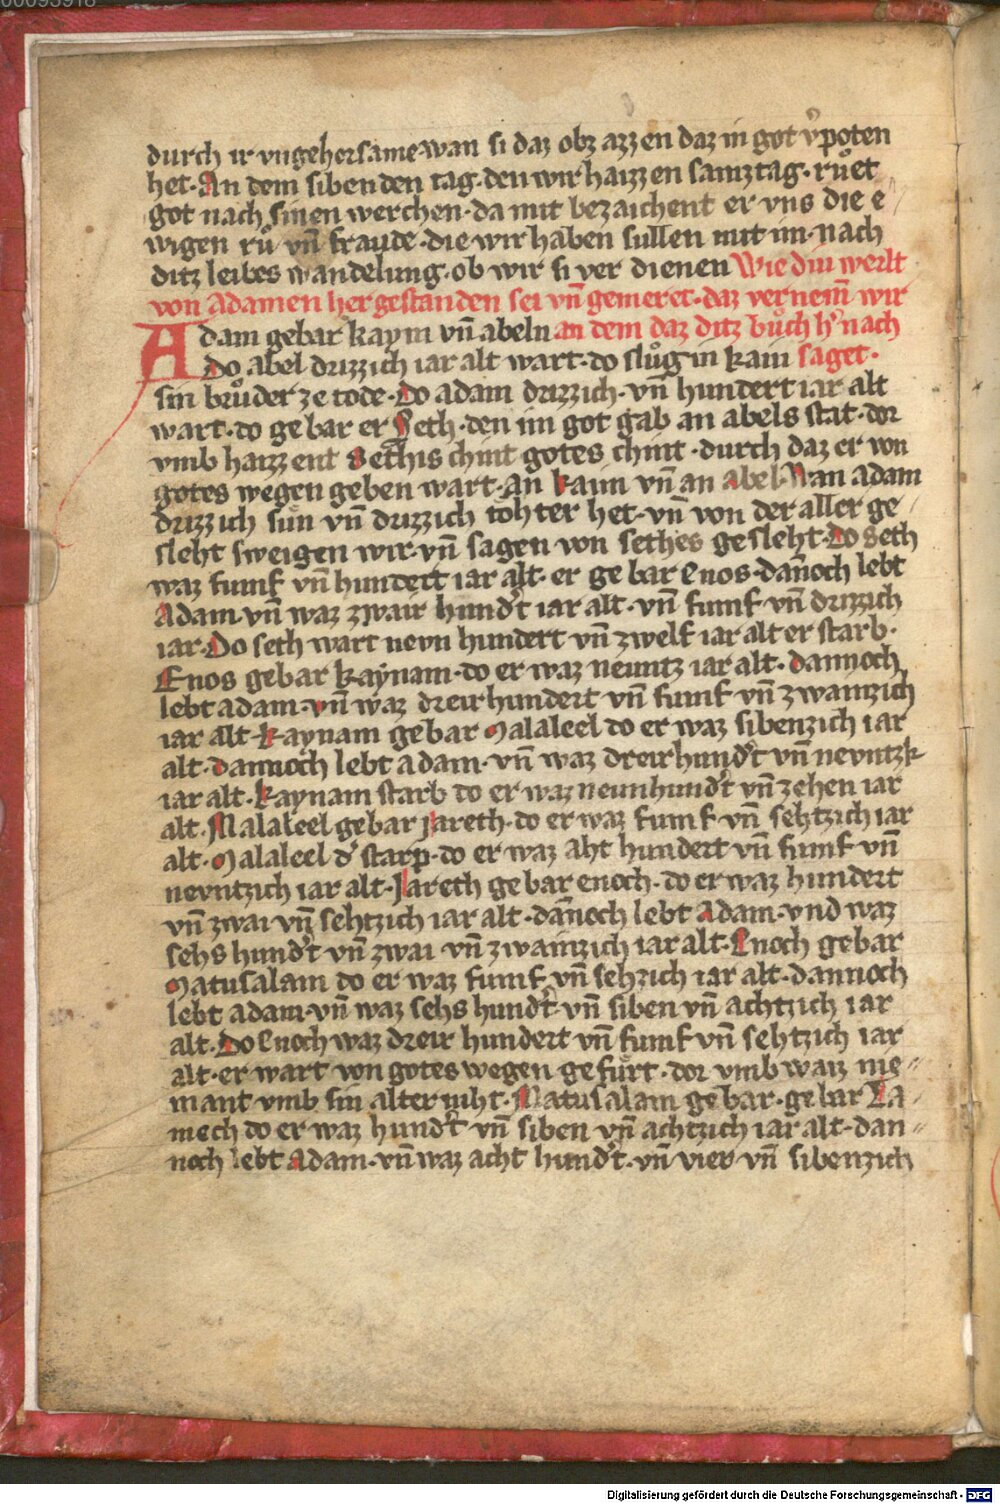 00093918
durch ir vngehorsame wan si daz obz azzen daz in got v̓poten
het· An dem sibenden tag· den wir haizzen samztag· ruͦet
got nach sinen werchen· da mit bezaichent er vns die e
wigen ruͦ vn̄ fraude· die wir haben sullen mit im· nach
ditz leibes wandelung· ob wir si ver dienen Wie diu werlt
von Adamen her gestanden sei vn̄ gemeret· daz vernem̄ wir
Adam gebar kaym vn̄ abeln an dem daz ditz buͦch h̓ nach
Do abel drizzich iar alt wart· do sluͦg in kain saget·
sin bruͦder ze tode· Do adam drizzich· vn̄ hundert iar alt
wart· do gebar er Seth· den im got gab an abels stat· dor
vmb haizzent Sethis chint gotes chint· durch daz er von
gotes wegen geben wart· An kain vn̄ an abel· Wan adam
drizzich sun̓ vn̄ drizzich tohter het· vn̄ von der aller ge
sleht sweigen wir· vn̄ sagen von sethes gesleht· Do Seth
waz funf vn̄ hundert iar alt· er gebar Enos· dan̄och lebt
Adam· vn̄ waz zwair hund̓t iar alt· vn̄ funf vn̄ drizzich
iar· Do seth wart nevn hundert vn̄ zwelf iar alt er starb·
Enos gebar kaynam· do er waz neuntz iar alt· dannoch
lebt adam· vn̄ waz dreir hundert vn̄ funf vn̄ zwainzich
iar alt· kaynam gebar Malaleel do er waz sibenzich iar
alt· dannoch lebt adam· vn̄ waz dreir hund̓t vn̄ nevntzk
iar alt· kaynam starb do er waz neunhund̓t vn̄ zehen iar
alt· Malaleel gebar Jareth· do er waz funf vn̄ sehtzich iar
alt· Malaleel d̓ starp· do er waz aht hundert vn̄ funf vn̄
nevntzich iar alt· Jareth gebar enoch· do er waz hundert
vn̄ zwai vn̄ sehtzich iar alt· dan̄och lebt Adam· vnd waz
sehs hund̓t vn̄ zwai vn̄ zwainzich iar alt· Enoch gebar
Matusalam do er waz funf vn̄ sehzich iar alt· dannoch
lebt adam· vn̄ waz sehs hund̓t vn̄ siben vn̄ achtzich iar
alt· Do Enoch waz dreir hundert vn̄ funf vn̄ sehtzich iar
alt· er wart von gotes wegen gefuͤrt· dor vmb waiz nie
mant vmb sin alter niht· Matusalam gebar· gebar La
mech do er waz hund̓t vn̄ siben vn̄ achtzich iar alt· dan
noch lebt Adam· vn̄ waz acht hund̓t· vn̄ vier vn̄ sibenzich
Digitalisierung gefördert durch die Deutsche Forschungsgemeinschaft - DFG